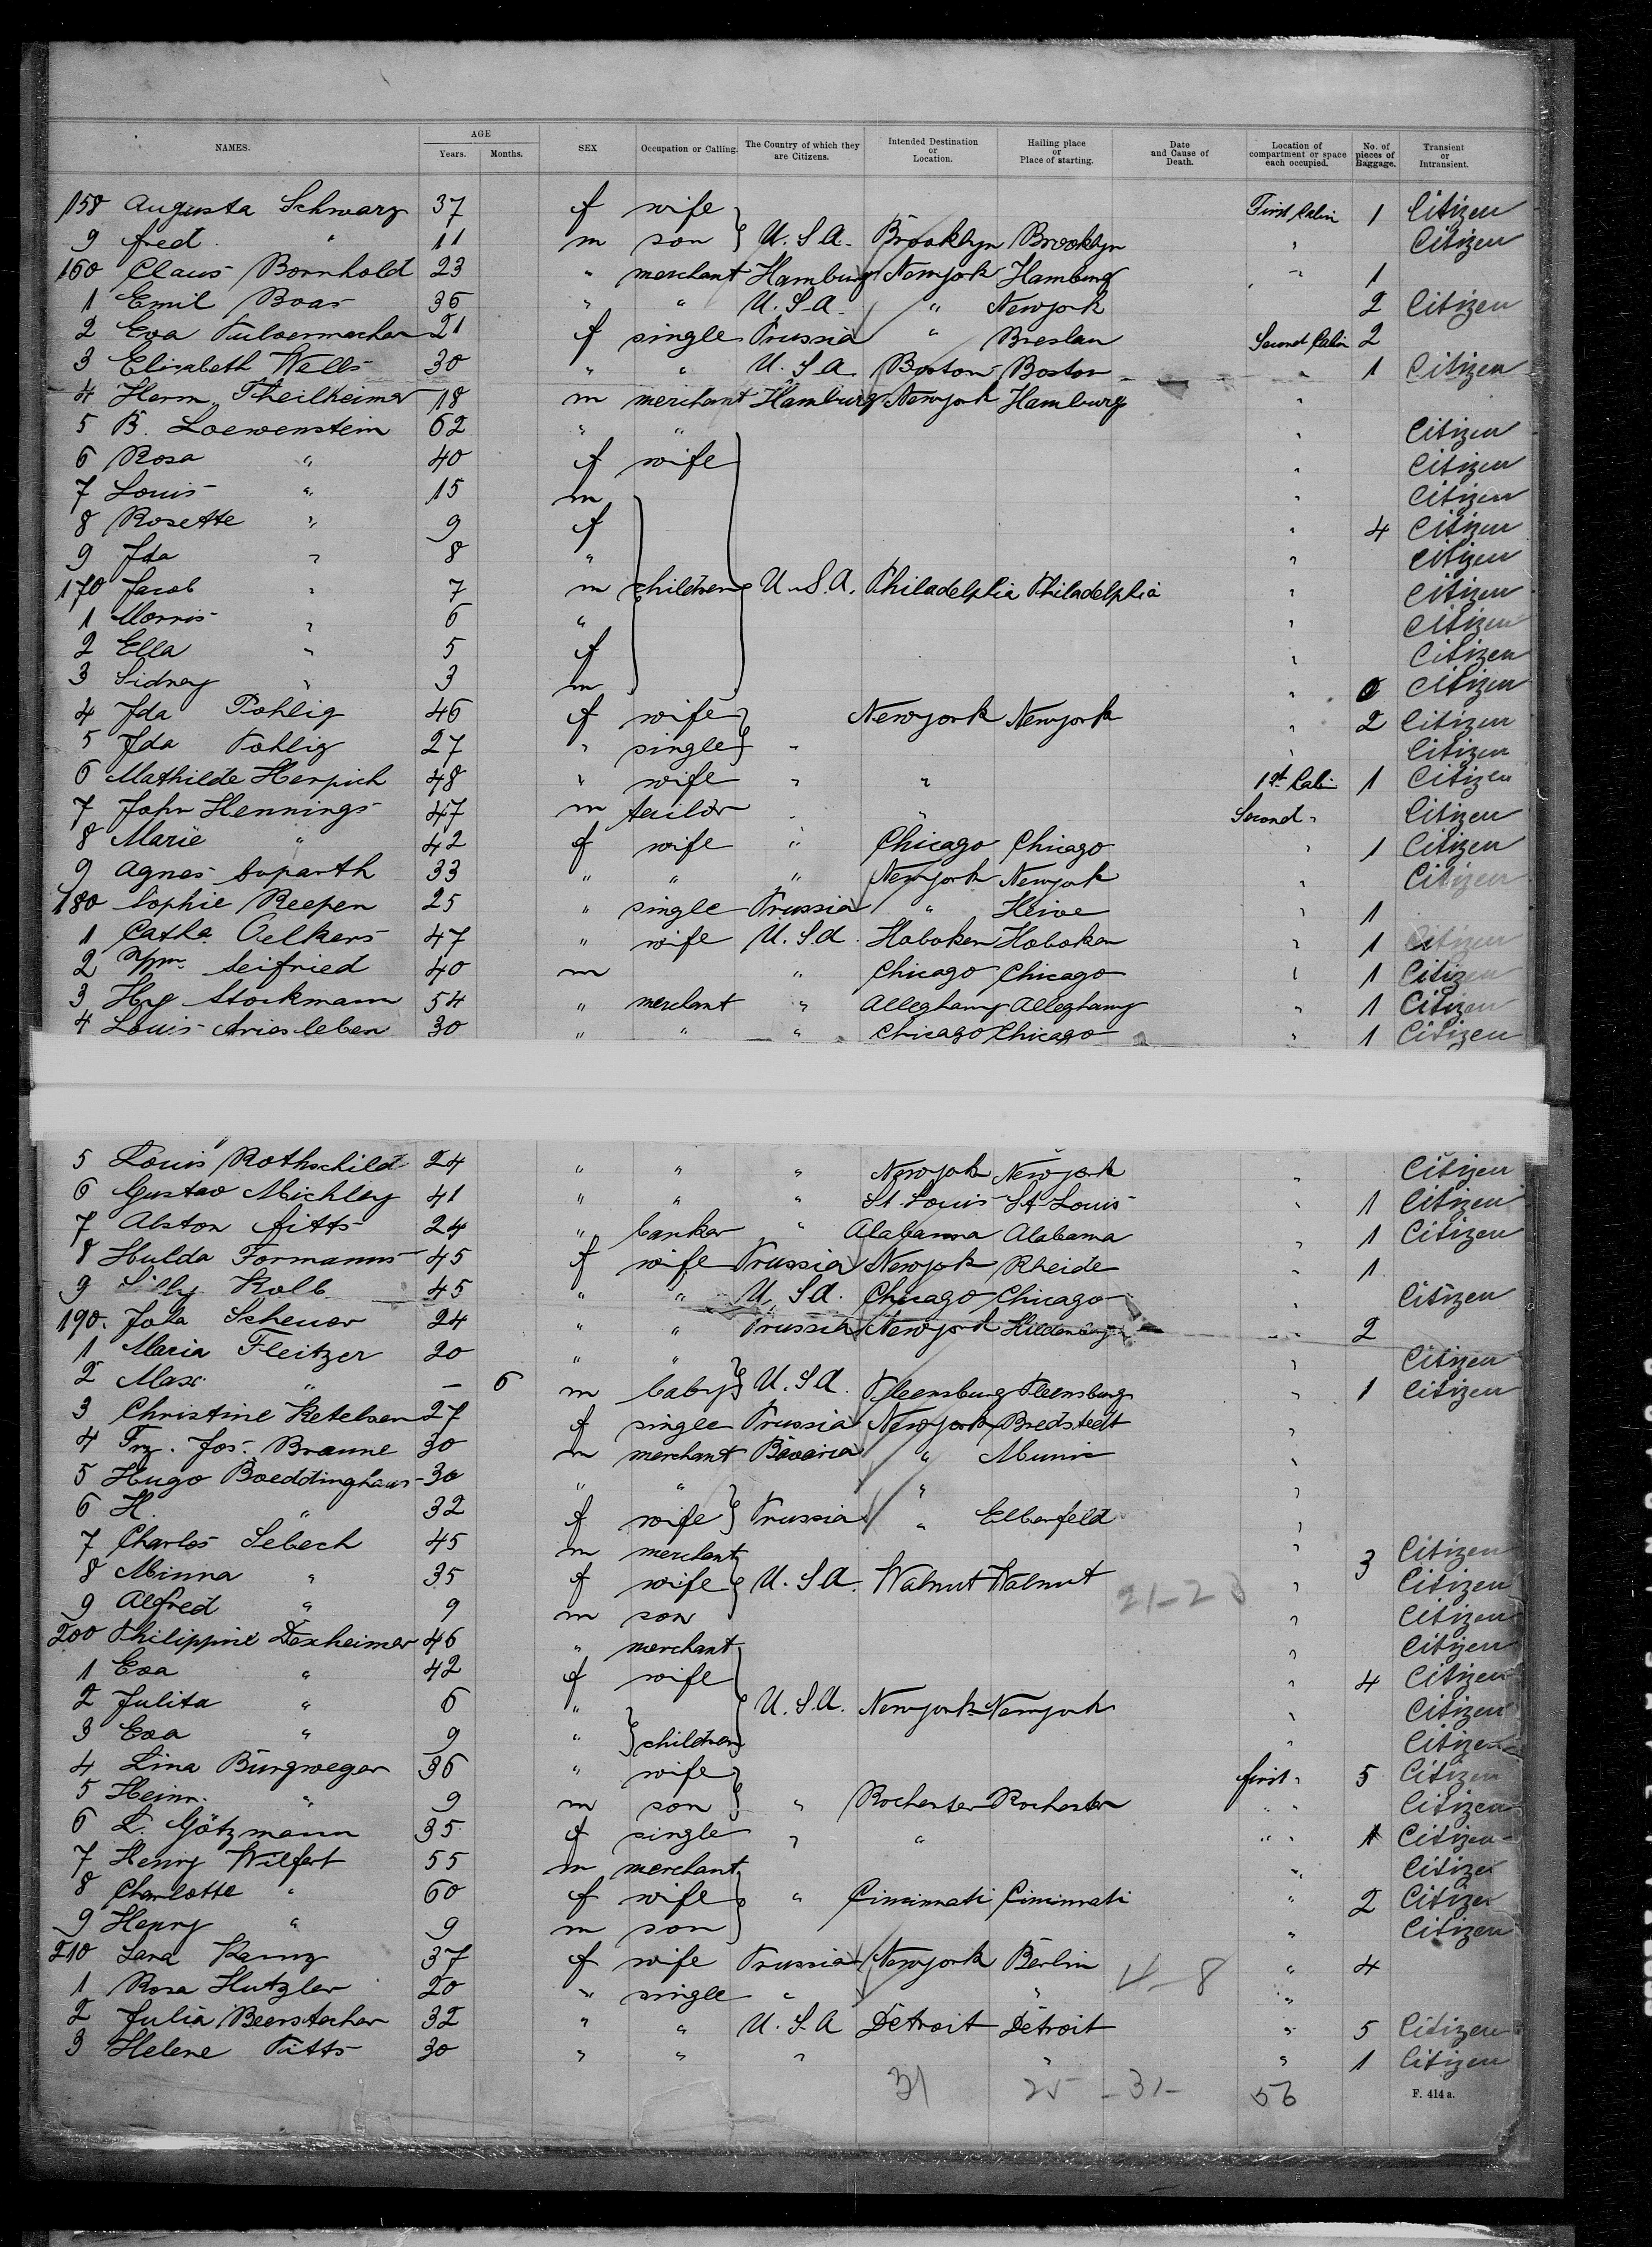 NAMES. AGE Years. Months. SEX Occupation or Calling. The Country of which they are Citizens. Intended Destination or Location. Hailing place or Place of starting. Date and Cause of Death. Location of compartment or space each occupied. No. of pieces of Baggage. Transient or Intransient.
158 Augusta Schwarz 37 f wife First Cabin 1 Citizen
9 Fred. " 11 m son } U.S.A. Brooklyn Brooklyn " Citizen
160 Claus Bornholdt 23 " merchant Hamburg Newyork Hamburg " 1
1 Emil Boas 36 " " U.S.A. " Newyork 2 Citizen
2 Eva Pulvermacher 21 f single Prussia " Breslau Second Cabin 2
3 Elisabeth Wells 30 " " U.S.A Boston Boston " 1 Citizen
4 Herm. Theilheimer 18 m merchant Hamburg Newyork Hamburg "
5 B. Loewenstein 62 " " " Citizen
6 Rosa " 40 f wife " Citizen
7 Louis " 15 m " Citizen
8 Rosette " 9 f " 4 Citizen
9 Ida " 8 " " Citizen
170 Jacob " 7 m children U.S.A. Philadelphia Philadelphia " Citizen
1 Morris " 6 " " Citizen
2 Ella " 5 f " Citizen
3 Sidney " 3 m " 0 Citizen
4 Ida Pohlig 46 f wife Newyork Newyork " 2 Citizen
5 Ida Pohlig 27 " single } " " Citizen
6 Mathilde Herpich 48 " wife " " 1st Cabin 1 Citizen
7 John Hennings 47 m tailor " " Second " Citizen
8 Marie " 42 f wife " Chicago Chicago " 1 Citizen
9 Agnes 33 " " " Newyork Newyork " Citizen
180 Sophie Reepen 25 " single Prussia " " 1
1 Catha. Oelkers 47 " wife U.S.A. Hoboken Hoboken " 1 Citizen
2 Wm. Seifried 40 m " Chicago Chicago " 1 Citizen
3 Hry Stockmann 54 " merchant " Alleghany Alleghany " 1 Citizen
4 Louis Ariesleben 30 " " " Chicago Chicago " 1 Citizen
5 Louis Rothschild 24 " " " Newyork Newyork " Citizen
6 Gustav Michley 41 " " " St. Louis St. Louis " 1 Citizen
7 Alston Fitts 24 " banker " Alabama Alabama " 1 Citizen
8 Hulda Formanns 45 f wife Prussia Newyork Rheide " 1
9 Kolb 45 " " U.S.A. Chicago Chicago " Citizen
190. Scheuer 24 " " Prussia Newyork 2
1 Maria Fleitzer 20 " " " Citizen
2 Max " — 6 m baby } U.S.A. Flensburg Flensburg " 1 Citizen
3 Christine Ketelsen 27 f single Prussia Newyork Bredstedt "
4 Frz. Jos. Braune 30 m merchant Bavaria " Munic "
5 Hugo Boeddinghaus 30 " " " "
6 H. " 32 f wife } Prussia " Elberfeld "
7 Charles Sebech 45 m merchant " 3 Citizen
8 Minna " 35 f wife } U.S.A. Walnut Walnut " Citizen
9 Alfred " 9 m son 21-23 " Citizen
200 Philippine Dexheimer 46 " merchant " Citizen
1 Eva " 42 f wife " 4 Citizen
2 Julita " 6 " U.S.A. Newyork Newyork " Citizen
3 Eva " 9 " } children " Citizen
4 Lina Burgweger 36 " wife first " 5 Citizen
5 Heinr. " 9 m son } " Rochester Rochester " " Citizen
6 L. Götzmann 35 f single " " " " 1 Citizen
7 Henry Wilfert 55 m merchant " Citizen
8 Charlotte " 60 f wife } " Cincinnati Cincinnati " 2 Citizen
9 Henry " 9 m son " Citizen
210 37 f wife Prussia Newyork Berlin " 4
1 Rosa Hutzler 20 " single " " 4-8 "
2 Julia Beerstecher 32 " " U.S.A Detroit Detroit " 5 Citizen
3 Helene Pitts 30 " " " " " 1 Citizen
31 25 -31- 56
F. 414 a.